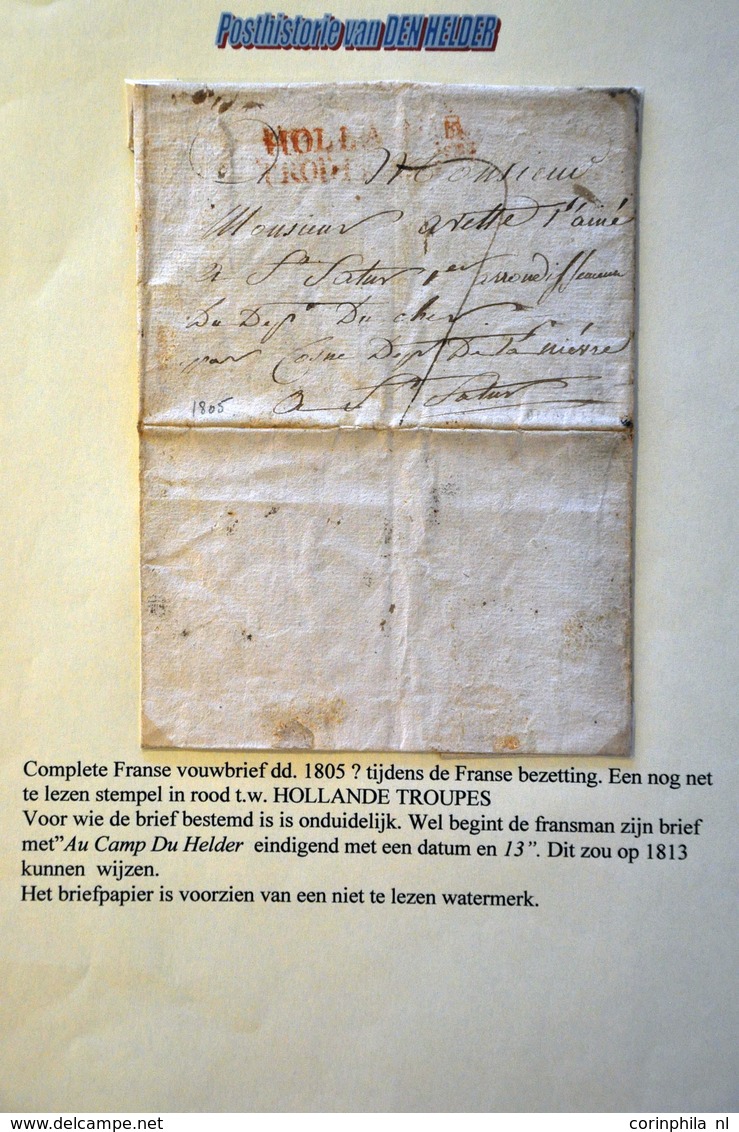 Posthistorie van DEN HELDER
HOLLA
A Monsieur
Monsieur arette l'ainé
a St Satur 1er arrondissement
Du Depr Du cher
par Cosne Dept De la nièvre
A St Satur
1805
Complete Franse vouwbrief dd. 1805 ? tijdens de Franse bezetting. Een nog net
te lezen stempel in rood t.w. HOLLANDE TROUPES
Voor wie de brief bestemd is is onduidelijk. Wel begint de fransman zijn brief
met”Au Camp Du Helder eindigend met een datum en 13”. Dit zou op 1813
kunnen wijzen.
Het briefpapier is voorzien van een niet te lezen watermerk.
delcampe.net
corinphila nl